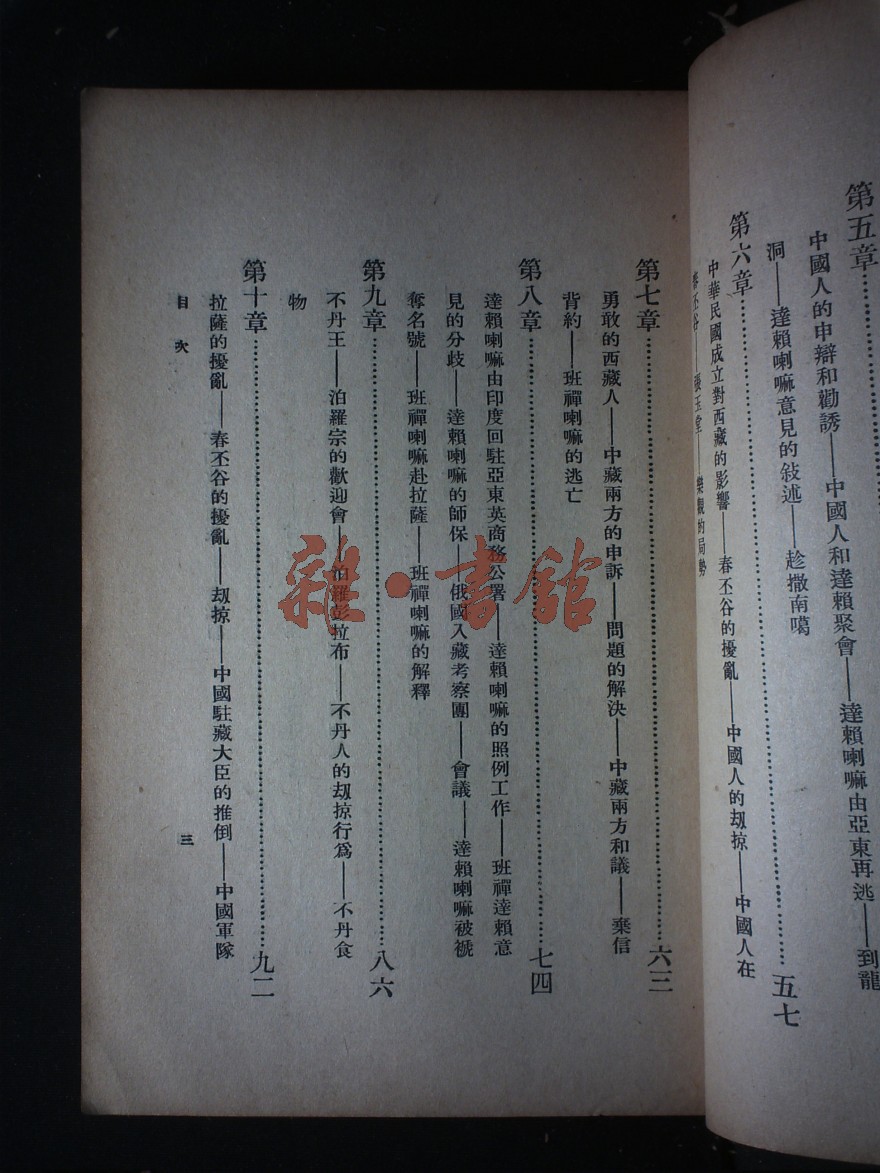 第五章
中國人的申辯和勸誘——中國人和達賴聚會——達賴喇嘛由亞東再逃——到龍
洞——達賴喇嘛意見的敍述——趁撒南噶
第六章……五七
中華民國成立對西藏的影響——春丕谷的擾亂——中國人的刼掠——中國人在
春丕谷——張玉堂——樂觀的局勢
第七章……六三
勇敢的西藏人——中藏兩方的申訴——問題的解決——中藏兩方和議——棄信
背約——班禪喇嘛的逃亡
第八章……七四
達賴喇嘛由印度回駐亞東英商務公署——達賴喇嘛的照例工作——班禪達賴意
見的分歧——達賴喇嘛的師保——俄國入藏考察團——會議——達賴喇嘛被褫
奪名號——班禪喇嘛赴拉薩——班禪喇嘛的解釋
第九章……八六
不丹王——泊羅宗的歡迎會——泊羅彭拉布——不丹人的刼掠行爲——不丹食
物
第十章……九二
拉薩的擾亂——春丕谷的擾亂——刼掠——中國駐藏大臣的推倒——中國軍隊
目次
三
雜·書館